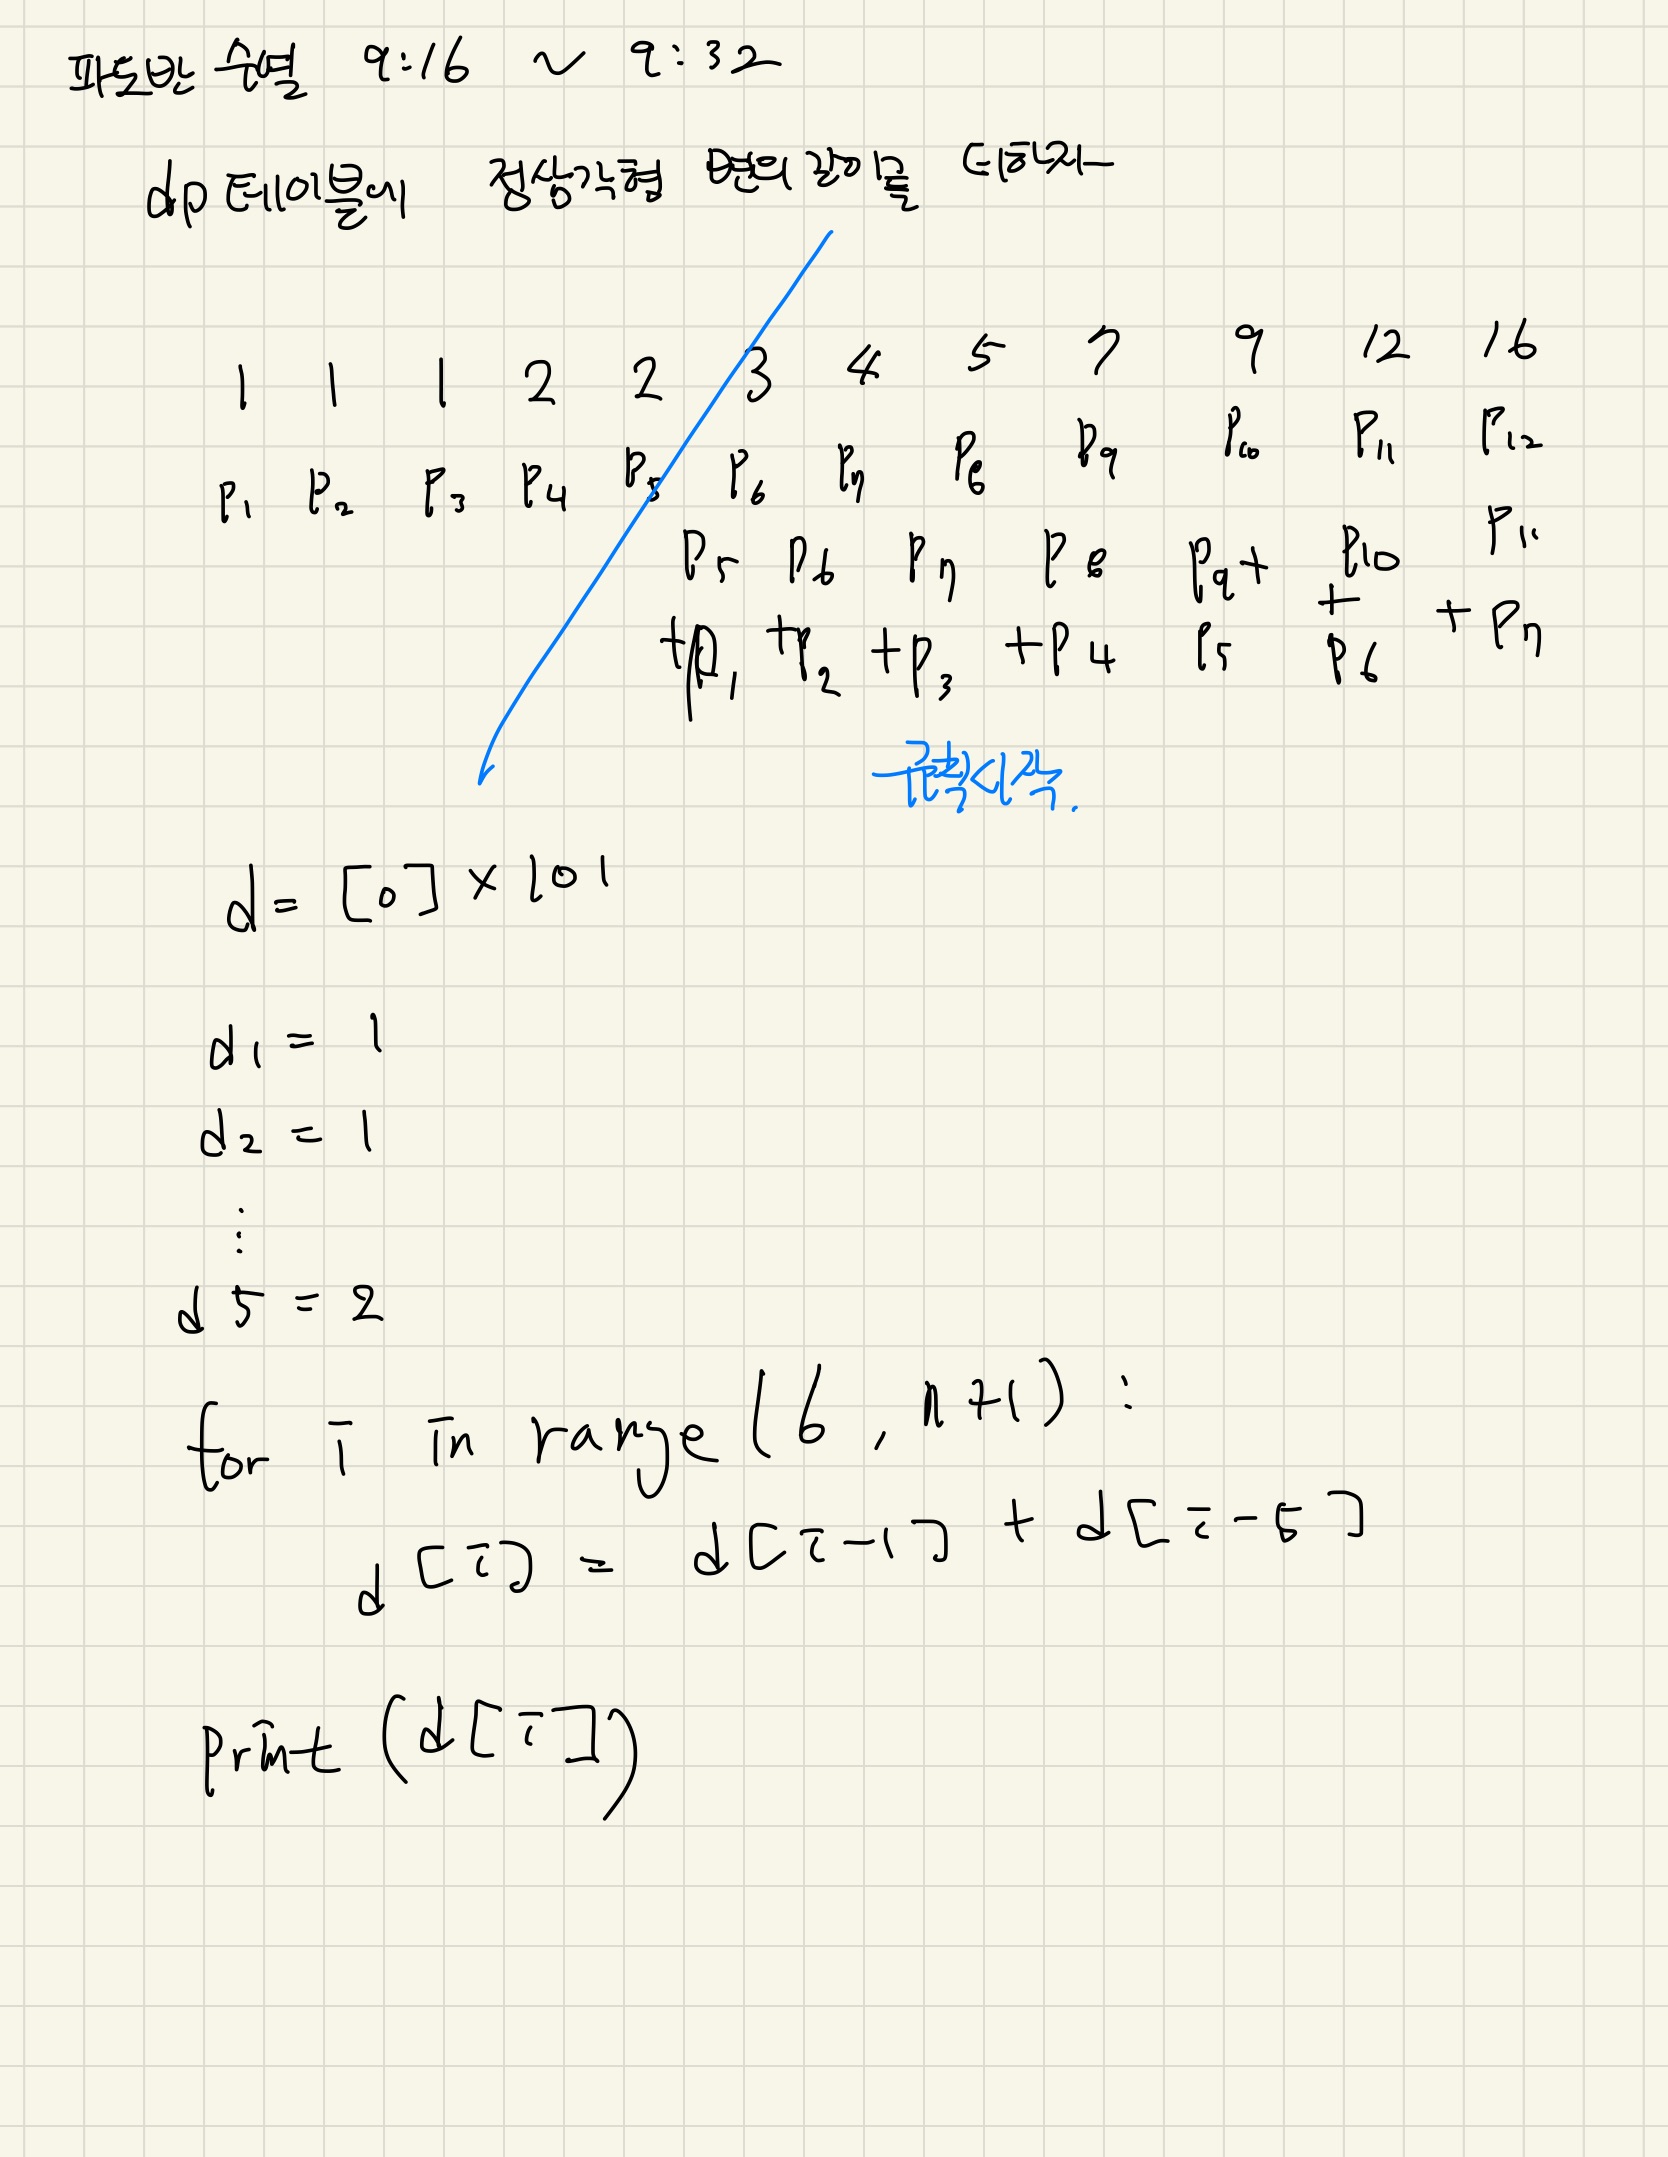 파도반 수열 9:16 ~ 9:32
dp 테이블에 정삼각형 변의 길이를 더하자
1 1 1 2 2 3 4 5 7 9 12 16
P1 P2 P3 P4 P5 P6 P7 P8 P9 P10 P11 P12
P5 P6 P7 P8 P9+ P10 P11
+P1 +P2 +P3 +P4 P5 + P6 + P7
규칙시작.
d = [0] × 101
d1 = 1
d2 = 1
⋮
d5 = 2
for i in range(6, n+1) :
d[i] = d[i-1] + d[i-5]
print (d[i])